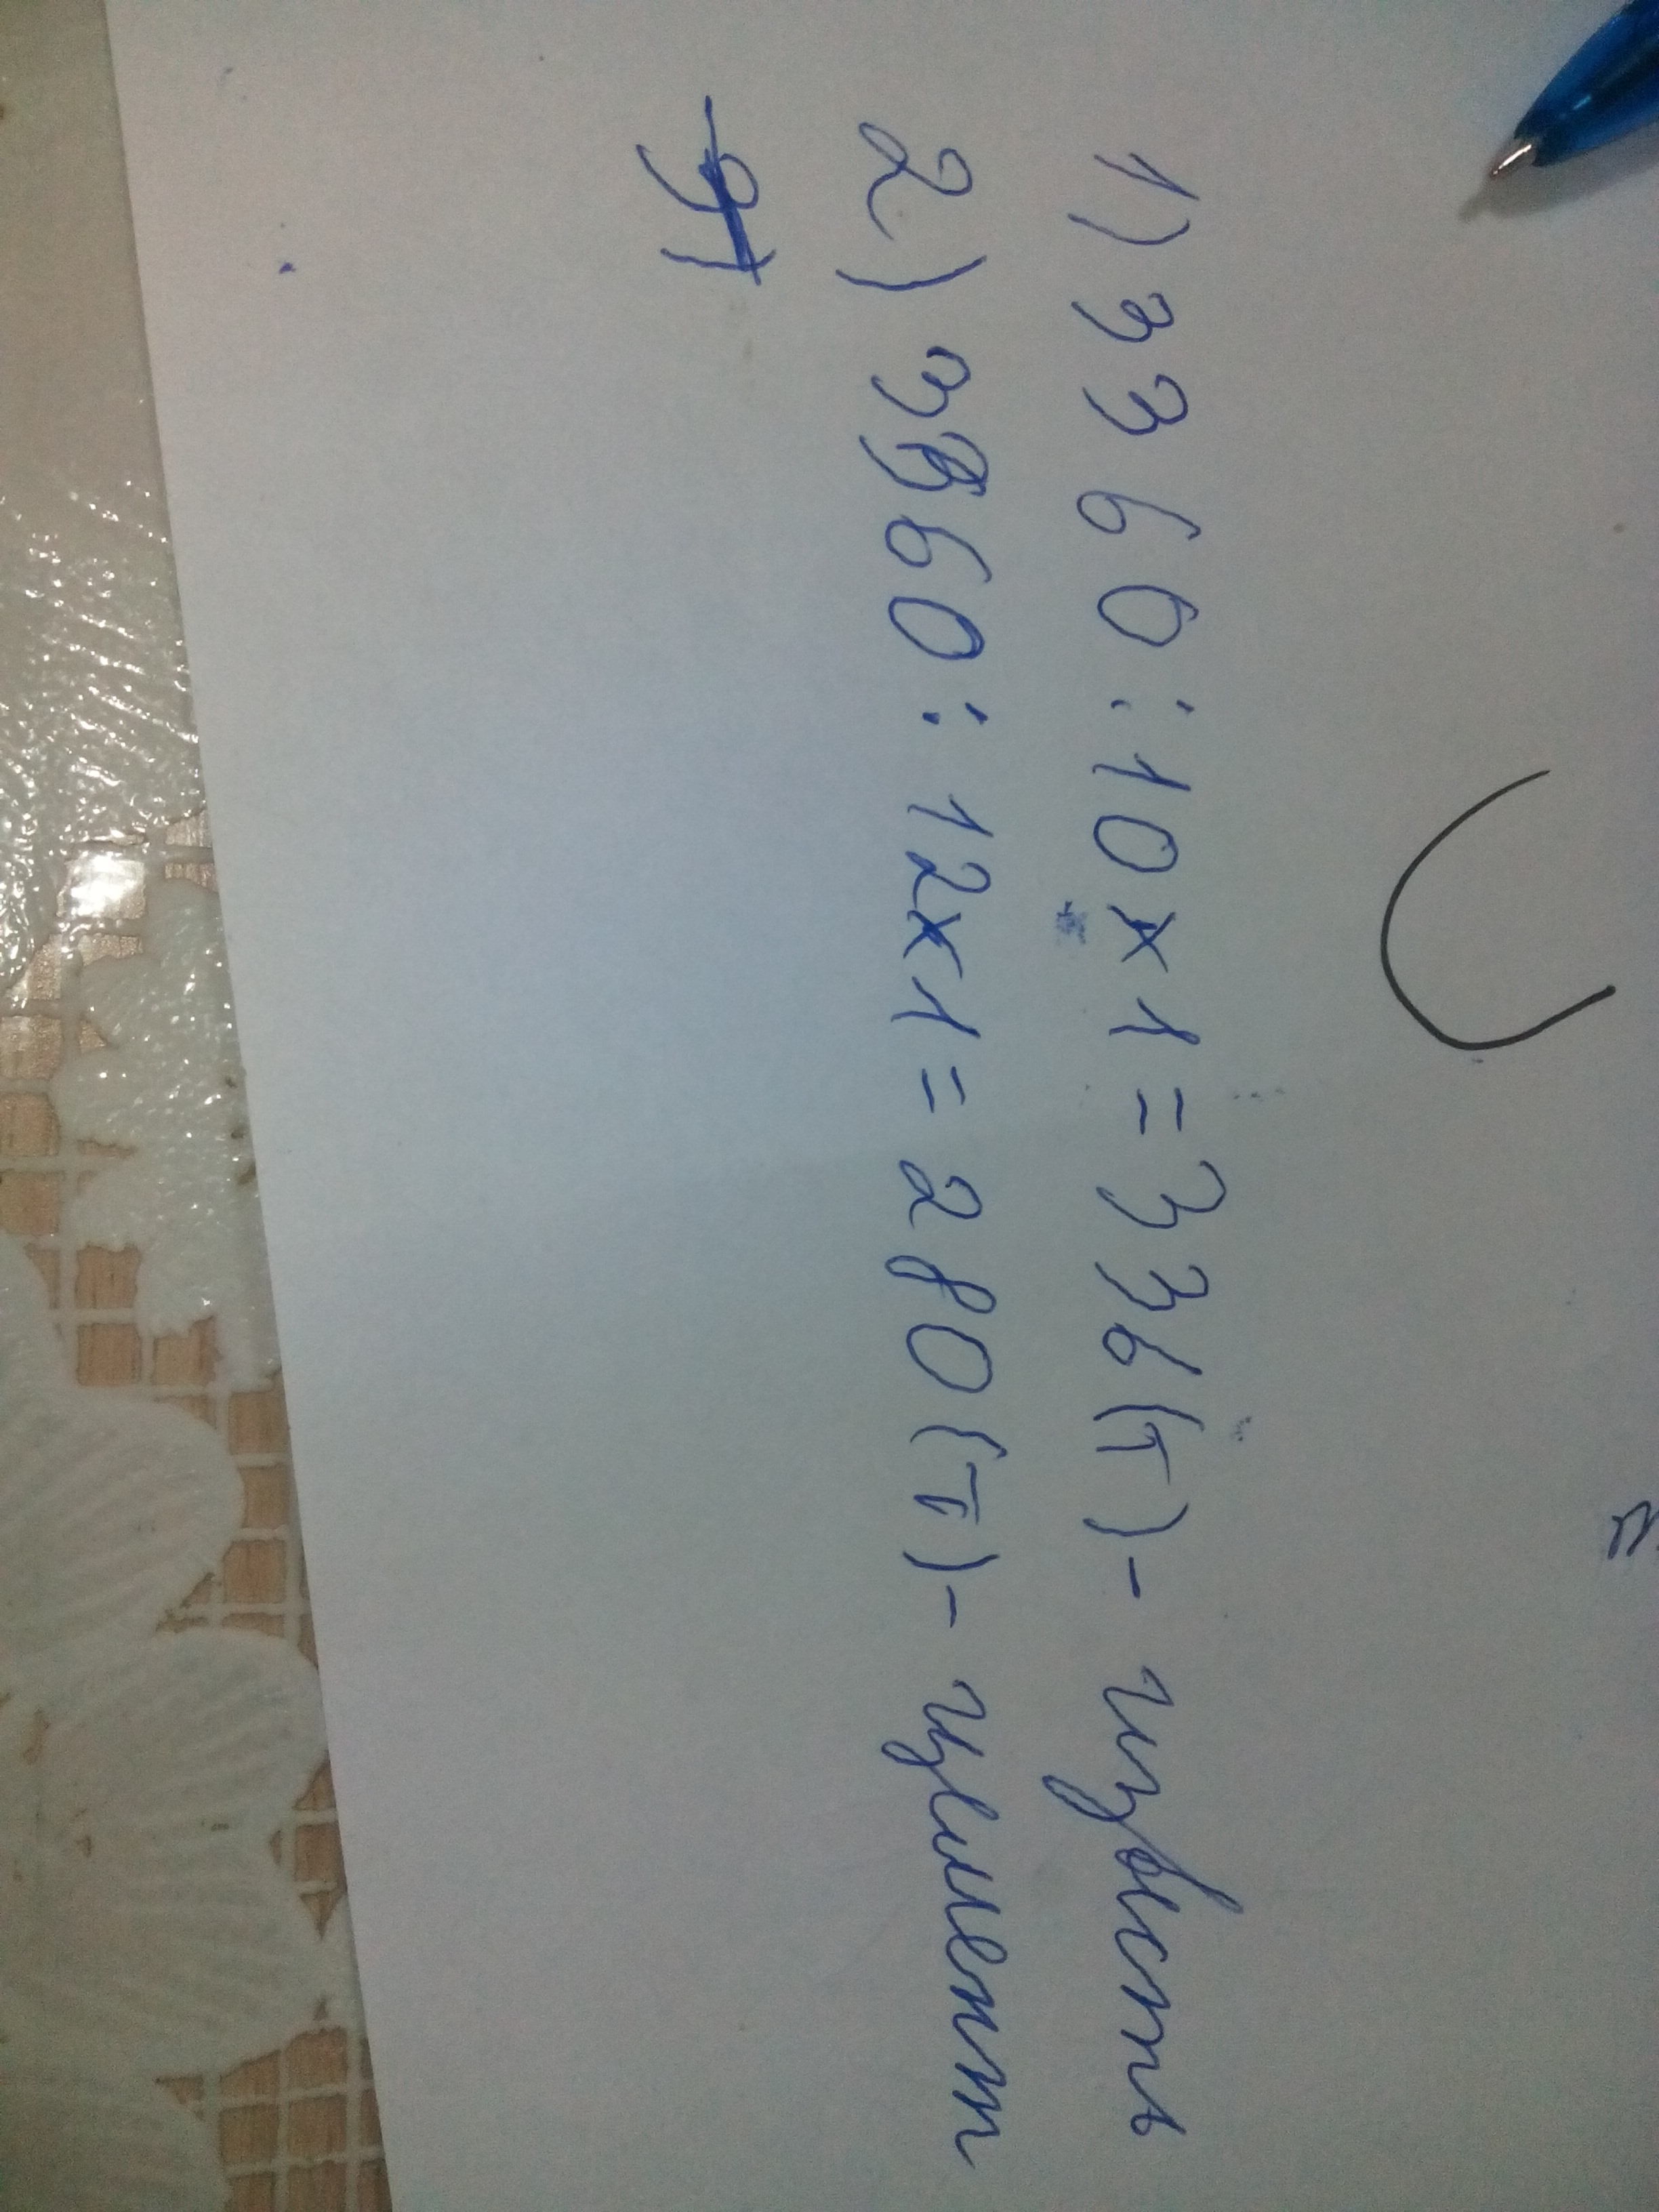 1) 3360 : 10 х 1 = 336 (т) - известь
2) 3360 : 12 х 1 = 280 (т) - цемент